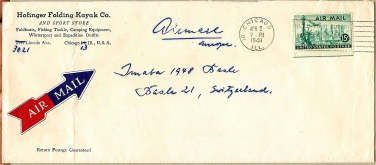 Hofinger Folding Kayak Co.
AND SPORT STORE
Foldboats, Fishing Tackle, Camping Equipment,
Wintersport and Expedition Outfits
Lincoln Ave. Chicago Ill., U.S.A.
3021 13
Airmail
Europe
CHICAGO
APR 2
7 PM
1948
ILL.
AIR MAIL
15¢
UNITED STATES POSTAGE
Imaba 1948 Basle
Basle 21, Switzerland.
AIR MAIL
Return Postage Guaranteed